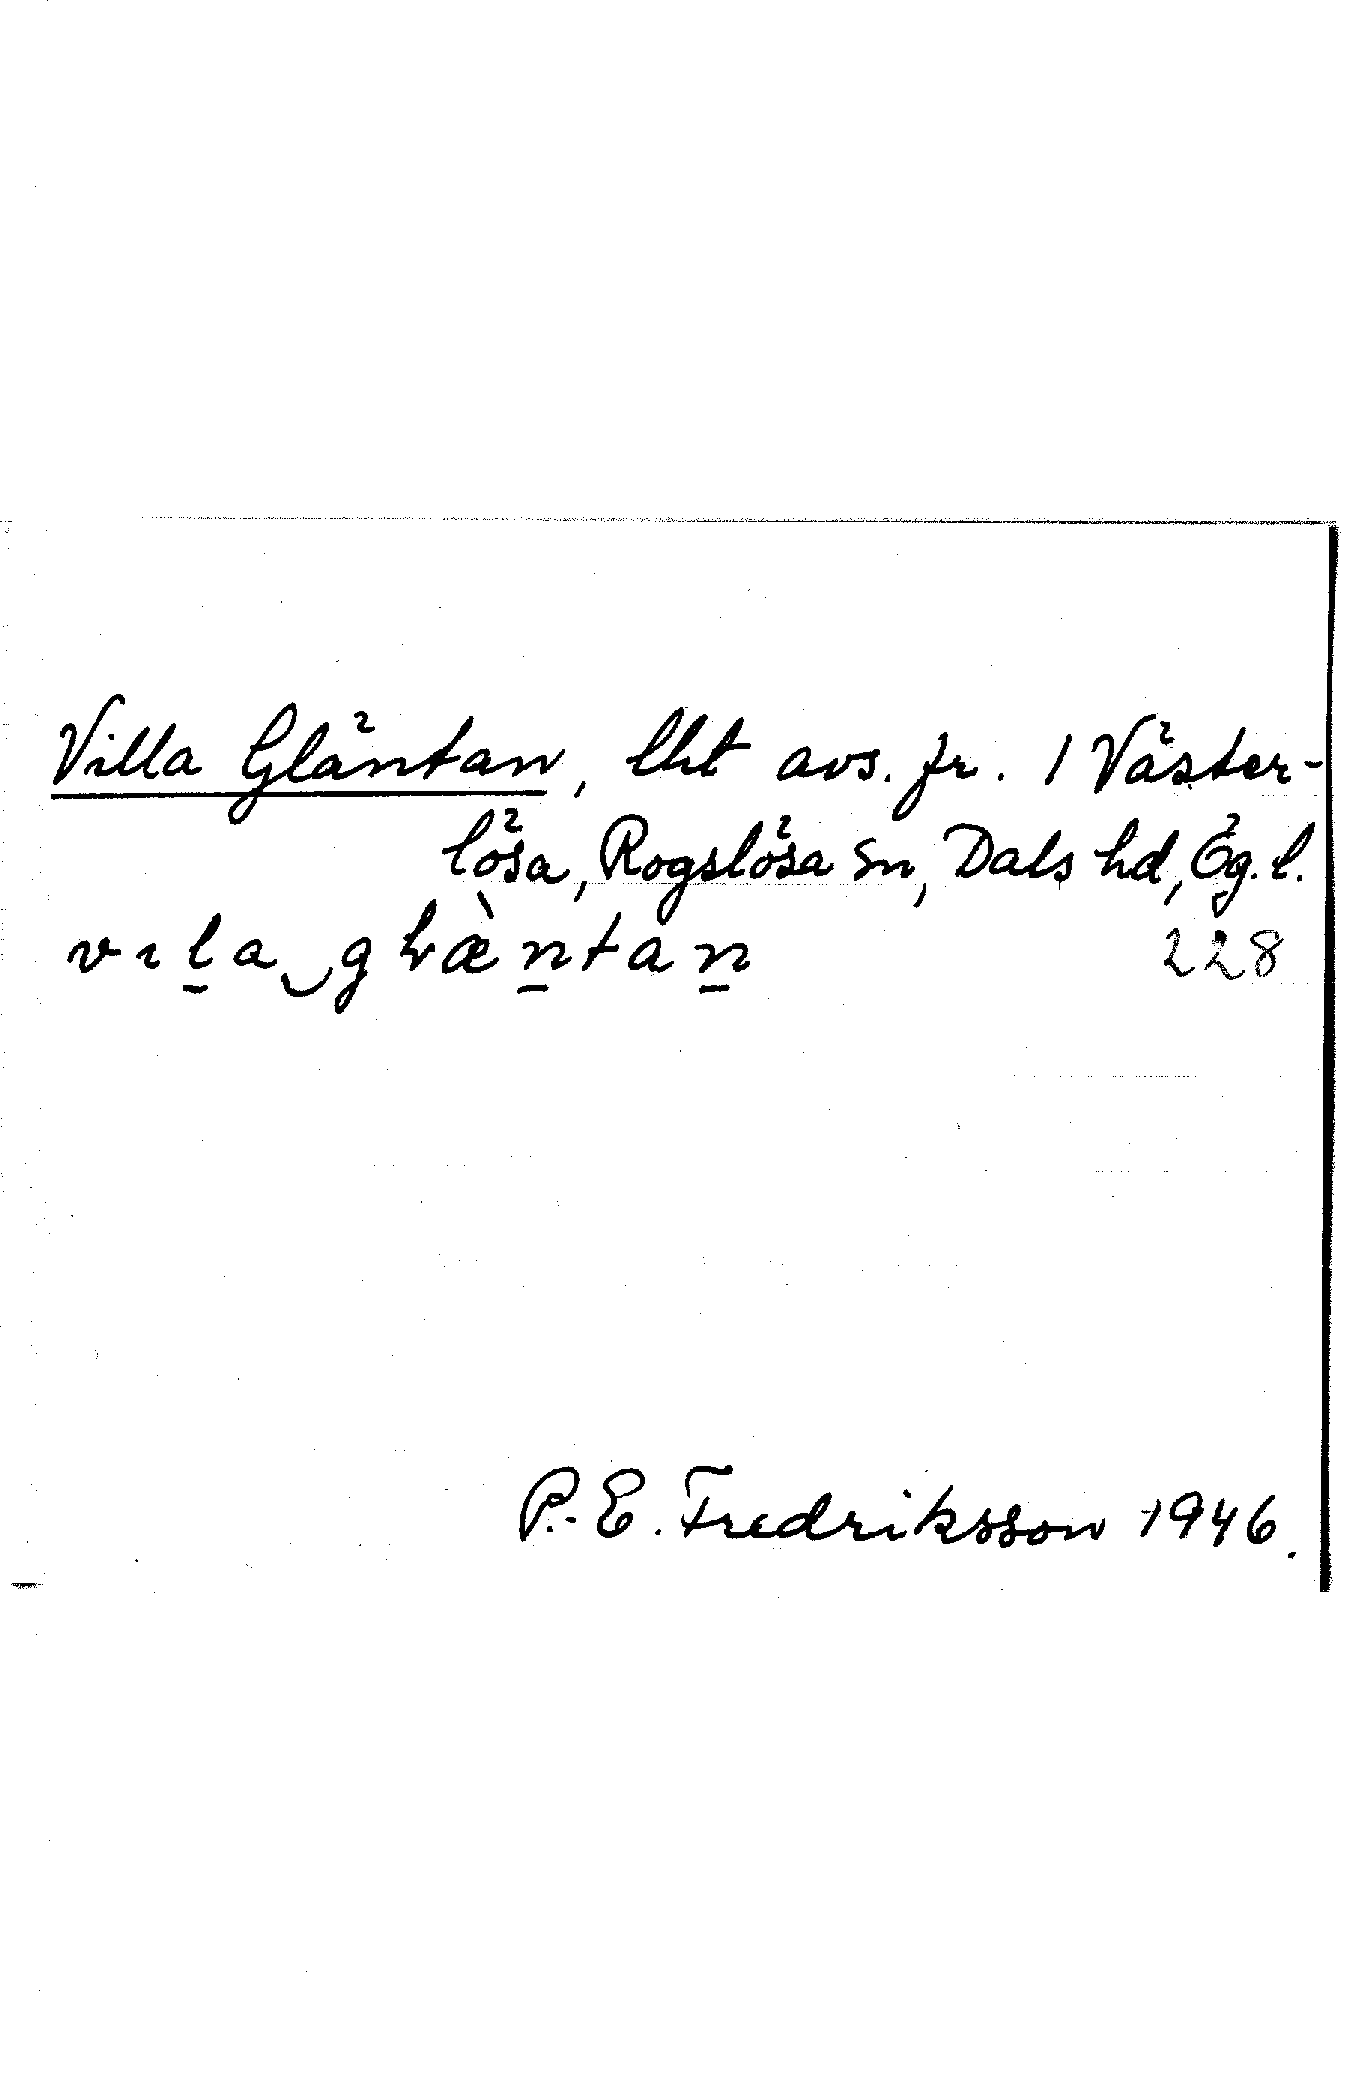 Villa Gläntan, lht avs. fr. 1 Väster-
lösa, Rogslösa sn, Dals hd, Ög. l.
vıl̲a‿glæ̀n̲tan̲ 228
P.-E. Fredriksson 1946.